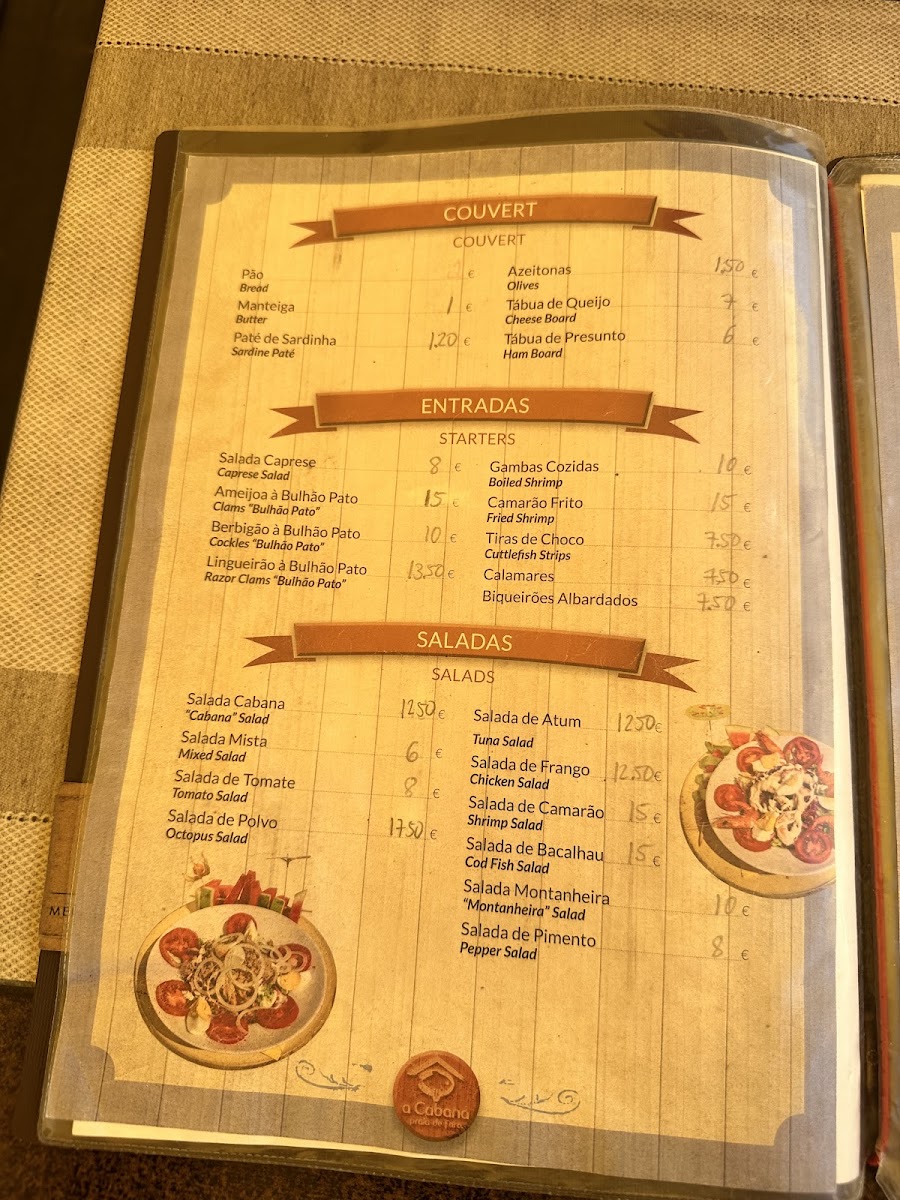 COUVERT
COUVERT
Pão €
Bread
Manteiga 1 €
Butter
Paté de Sardinha 1.20 €
Sardine Paté
Azeitonas 1.50 €
Olives
Tábua de Queijo 7 €
Cheese Board
Tábua de Presunto 6 €
Ham Board
ENTRADAS
STARTERS
Salada Caprese 8 €
Caprese Salad
Ameijoa à Bulhão Pato 15 €
Clams "Bulhão Pato"
Berbigão à Bulhão Pato 10 €
Cockles "Bulhão Pato"
Lingueirão à Bulhão Pato 13.50 €
Razor Clams "Bulhão Pato"
Gambas Cozidas 10 €
Boiled Shrimp
Camarão Frito 15 €
Fried Shrimp
Tiras de Choco 7.50 €
Cuttlefish Strips
Calamares 7.50 €
Biqueirões Albardados 7.50 €
SALADAS
SALADS
Salada Cabana 12.50 €
"Cabana" Salad
Salada Mista 6 €
Mixed Salad
Salada de Tomate 8 €
Tomato Salad
Salada de Polvo 17.50 €
Octopus Salad
Salada de Atum 12.50 €
Tuna Salad
Salada de Frango 12.50 €
Chicken Salad
Salada de Camarão 15 €
Shrimp Salad
Salada de Bacalhau 15 €
Cod Fish Salad
Salada Montanheira 10 €
"Montanheira" Salad
Salada de Pimento 8 €
Pepper Salad
ME
a Cabana
praia de Faro